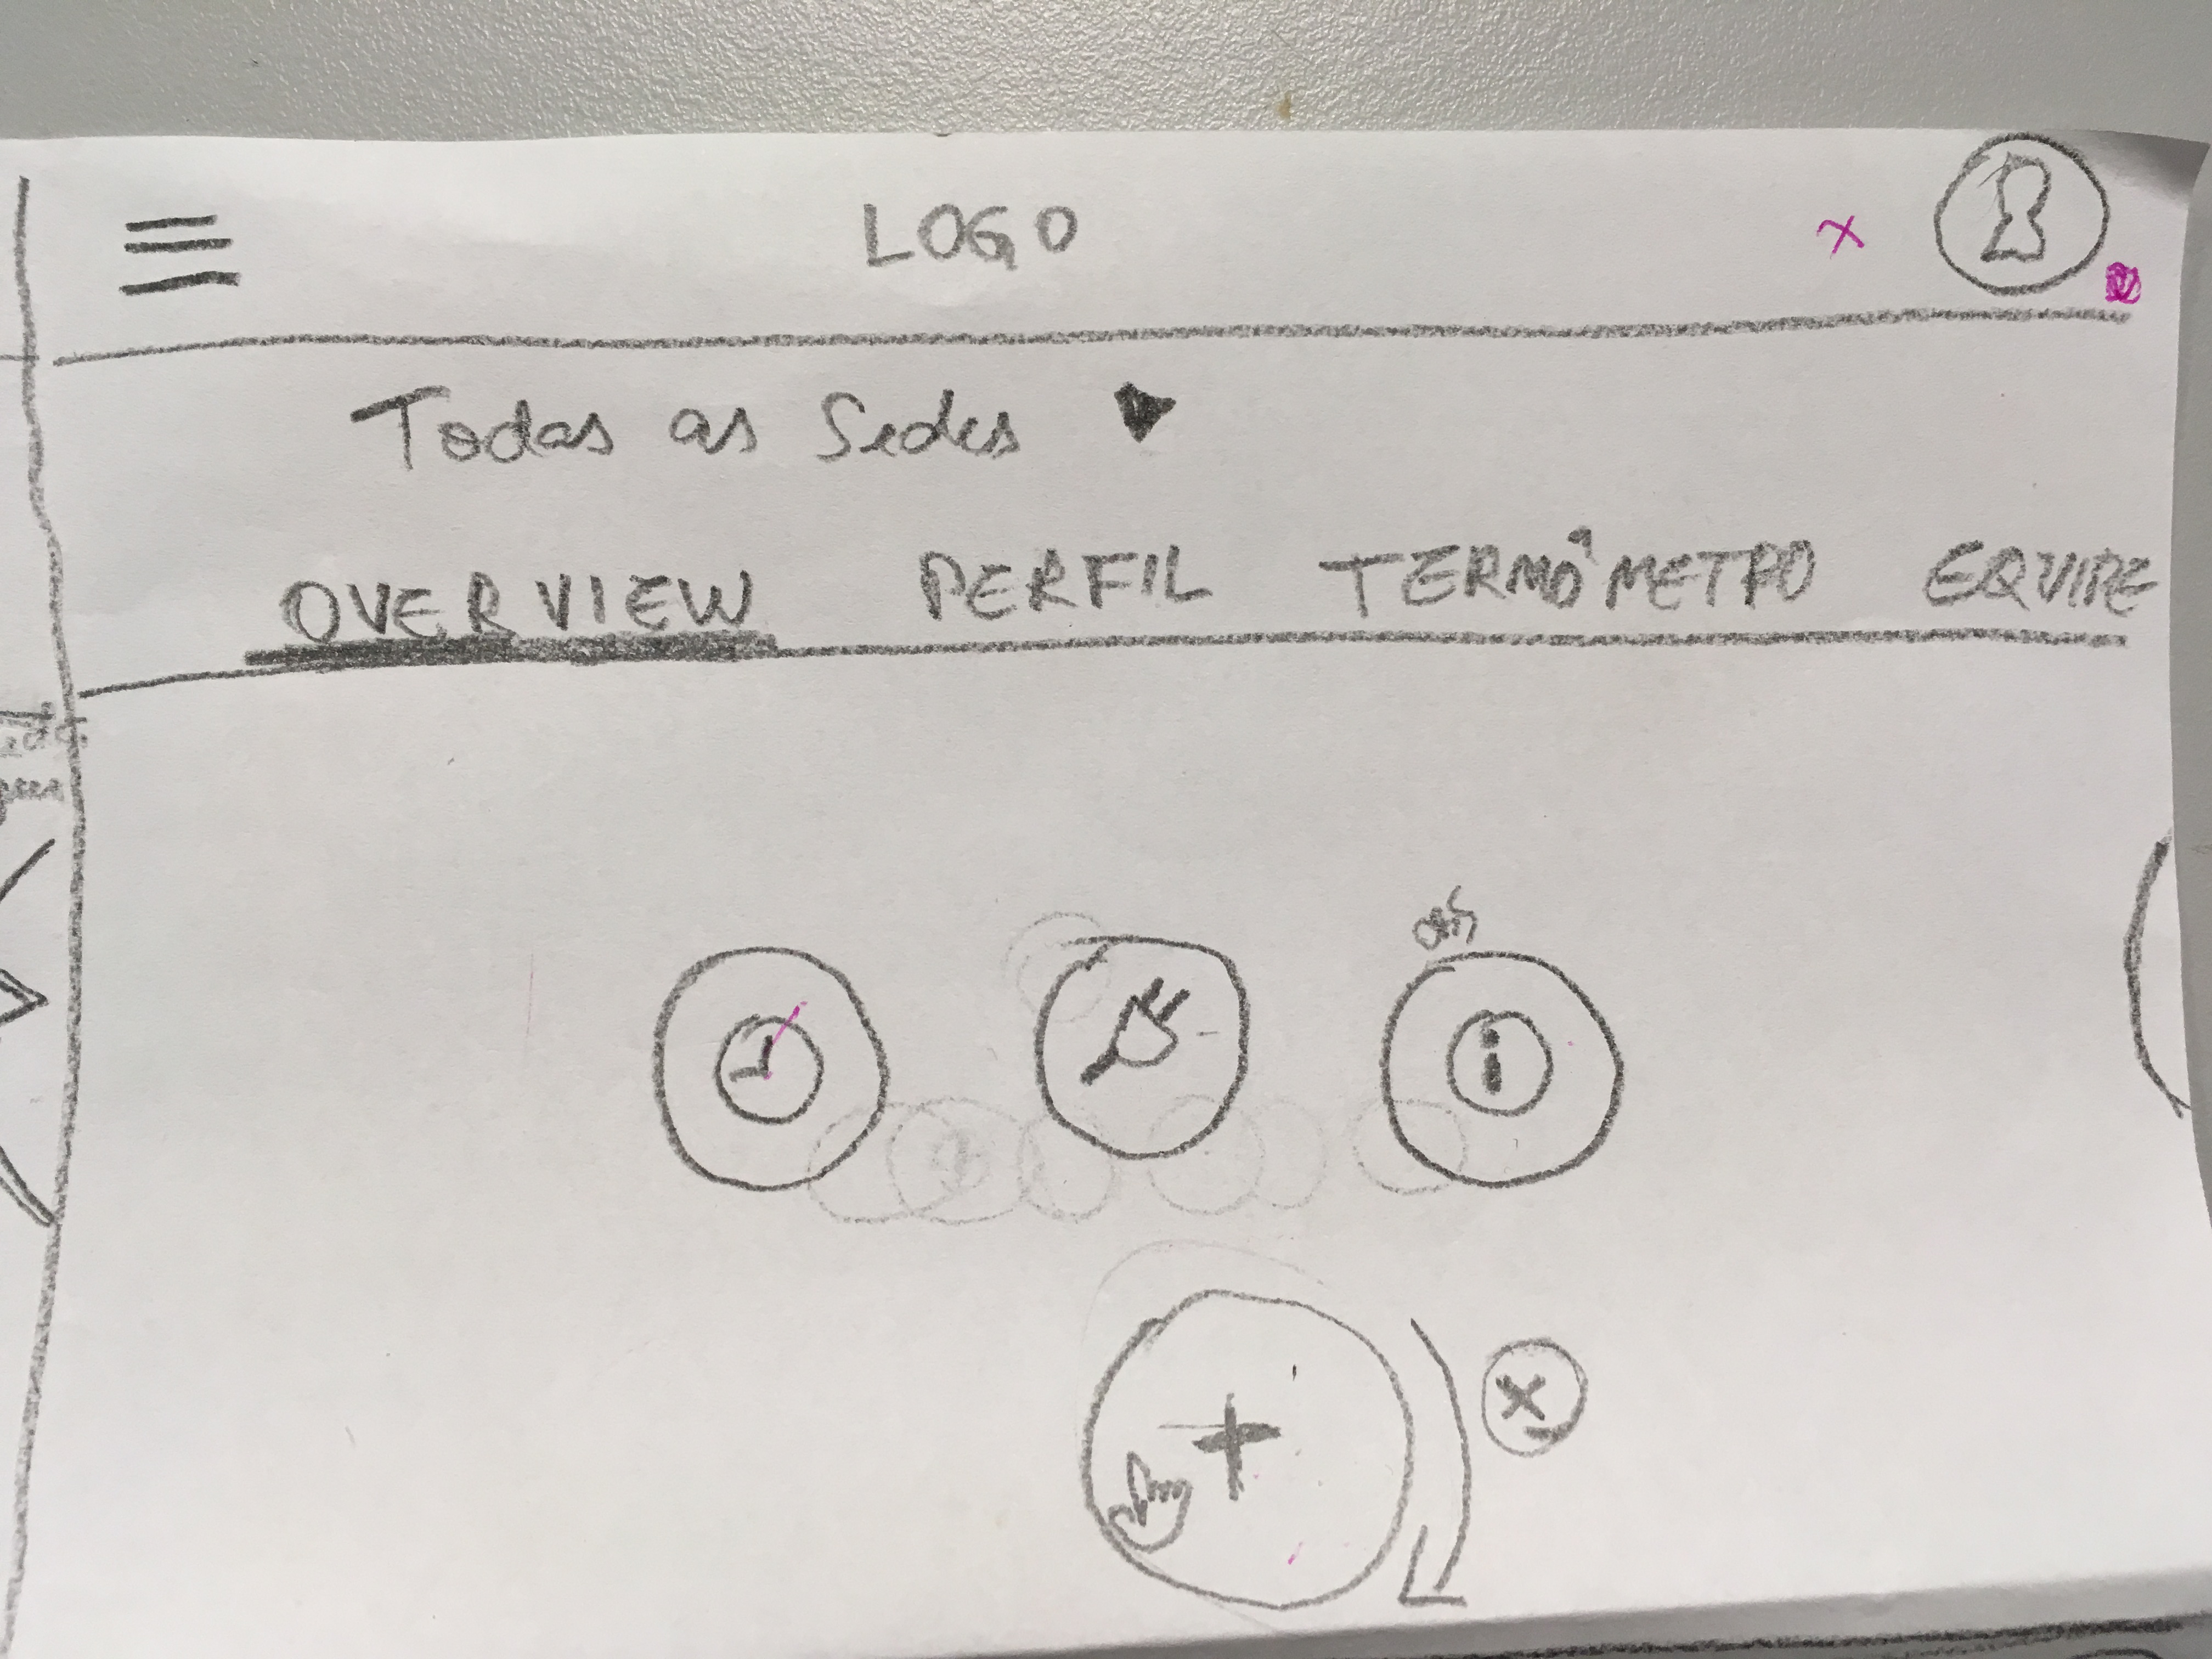 LOGO
Todas as Sedes
OVERVIEW PERFIL TERMÔMETRO EQUIPE
i
+
x